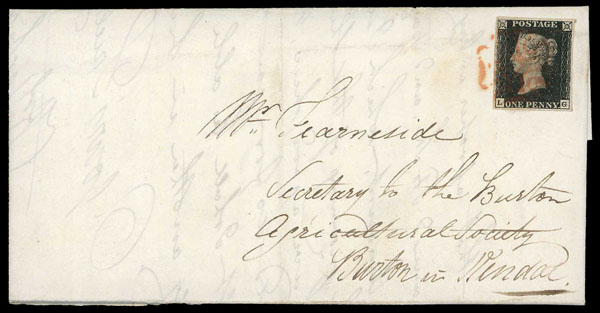 POSTAGE
ONE PENNY
L G
Mr. Fearneside
Secretary to the Burton
Agricultural Society
Burton in Kendal.